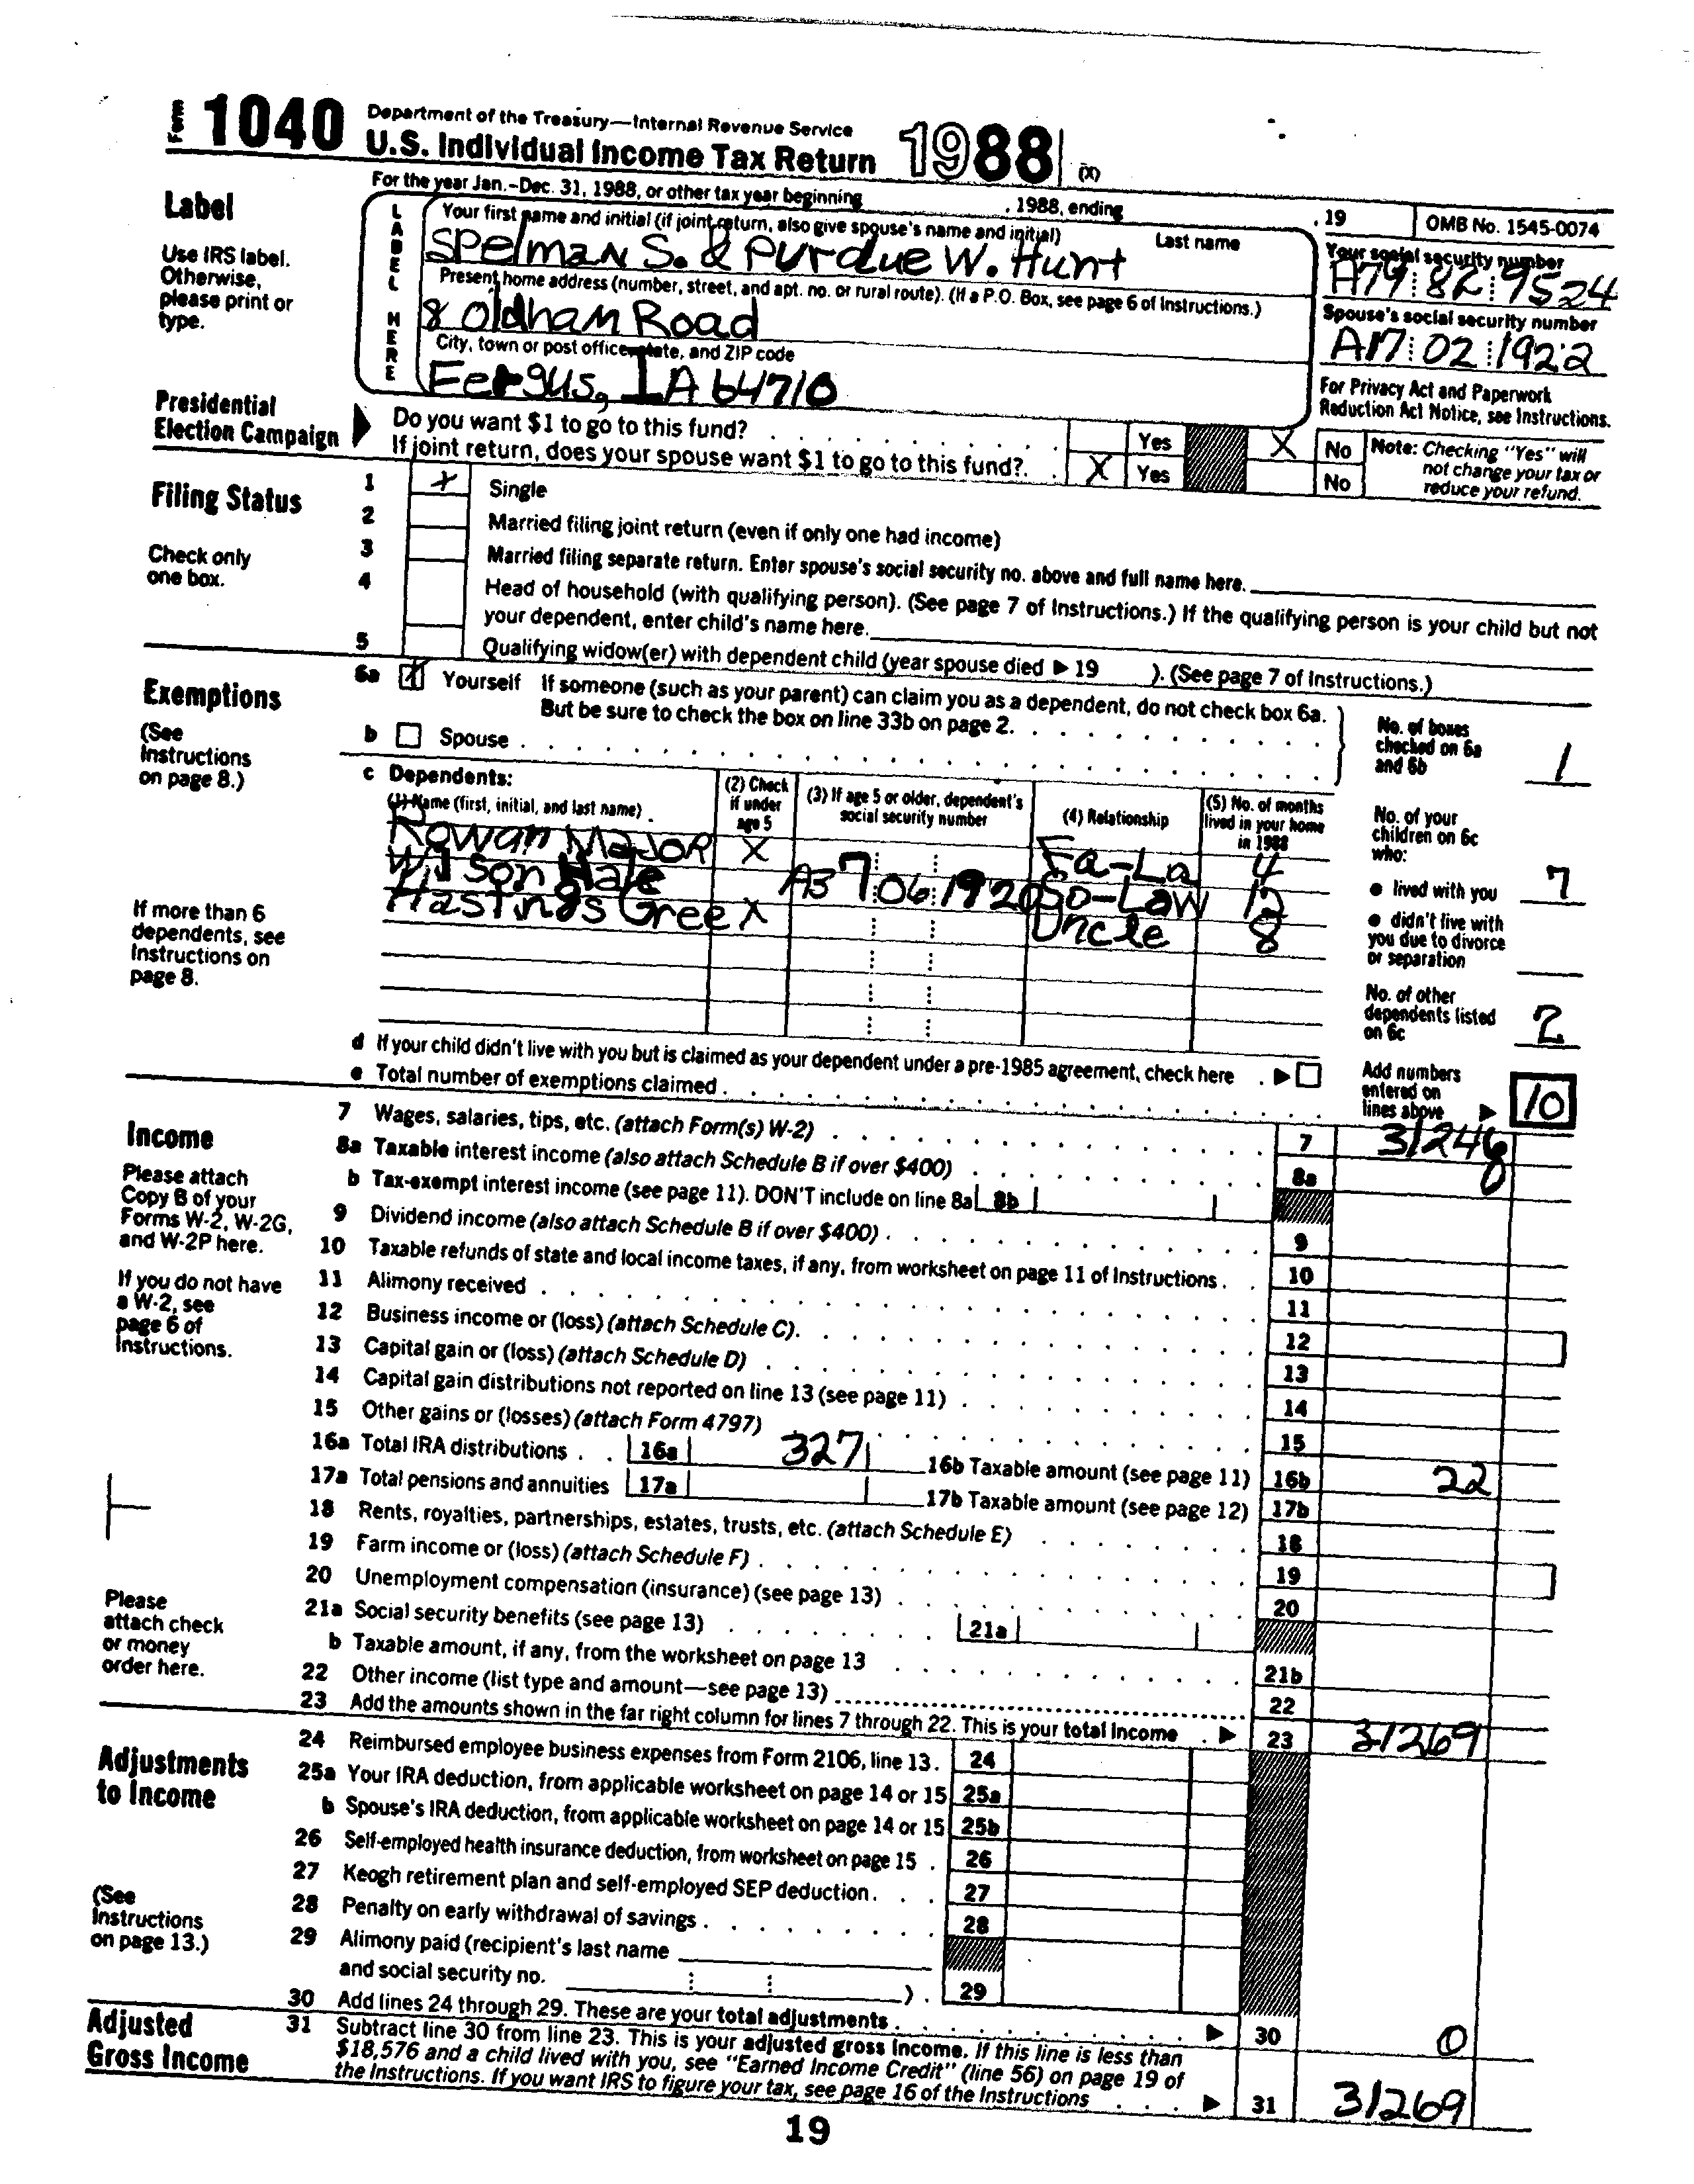 Form 1040 Department of the Treasury—Internal Revenue Service
U.S. Individual Income Tax Return 1988 (X)
For the year Jan.-Dec. 31, 1988, or other tax year beginning , 1988, ending , 19 OMB No. 1545-0074
Label
Use IRS label.
Otherwise,
please print or
type.
LABEL HERE
Your first name and initial (if joint return, also give spouse's name and initial) Last name
Spelman S. & Purdue W. Hunt
Your social security number
A79 82 9524
Present home address (number, street, and apt. no. or rural route). (If a P.O. Box, see page 6 of Instructions.)
8 Oldham Road
Spouse's social security number
A17 02 1922
City, town or post office, state, and ZIP code
Fergus, IA 64710
For Privacy Act and Paperwork
Reduction Act Notice, see Instructions.
Presidential
Election Campaign
Do you want $1 to go to this fund? Yes X No
If joint return, does your spouse want $1 to go to this fund? X Yes No
Note: Checking "Yes" will
not change your tax or
reduce your refund.
Filing Status
Check only
one box.
1 X Single
2 Married filing joint return (even if only one had income)
3 Married filing separate return. Enter spouse's social security no. above and full name here.
4 Head of household (with qualifying person). (See page 7 of Instructions.) If the qualifying person is your child but not
your dependent, enter child's name here.
5 Qualifying widow(er) with dependent child (year spouse died ▶ 19 ). (See page 7 of Instructions.)
Exemptions
(See
Instructions
on page 8.)
If more than 6
dependents, see
Instructions on
page 8.
6a X Yourself If someone (such as your parent) can claim you as a dependent, do not check box 6a.
But be sure to check the box on line 33b on page 2.
b Spouse
No. of boxes
checked on 6a
and 6b 1
c Dependents:
(1) Name (first, initial, and last name)
(2) Check
if under
age 5
(3) If age 5 or older, dependent's
social security number
(4) Relationship
(5) No. of months
lived in your home
in 1988
Rowan Major X Fa-La 4
Wilson Hale A37 06 1920 So-Law 12
Hastings Gree X Uncle 8
No. of your
children on 6c
who:
● lived with you 7
● didn't live with
you due to divorce
or separation
No. of other
dependents listed
on 6c 2
d If your child didn't live with you but is claimed as your dependent under a pre-1985 agreement, check here ▶
e Total number of exemptions claimed
Add numbers
entered on
lines above ▶ 10
Income
Please attach
Copy B of your
Forms W-2, W-2G,
and W-2P here.
If you do not have
a W-2, see
page 6 of
Instructions.
Please
attach check
or money
order here.
7 Wages, salaries, tips, etc. (attach Form(s) W-2) 7 31246
8a Taxable interest income (also attach Schedule B if over $400) 8a 0
b Tax-exempt interest income (see page 11). DON'T include on line 8a 8b
9 Dividend income (also attach Schedule B if over $400) 9
10 Taxable refunds of state and local income taxes, if any, from worksheet on page 11 of Instructions 10
11 Alimony received 11
12 Business income or (loss) (attach Schedule C) 12
13 Capital gain or (loss) (attach Schedule D) 13
14 Capital gain distributions not reported on line 13 (see page 11) 14
15 Other gains or (losses) (attach Form 4797) 15
16a Total IRA distributions 16a 327 16b Taxable amount (see page 11) 16b 22
17a Total pensions and annuities 17a 17b Taxable amount (see page 12) 17b
18 Rents, royalties, partnerships, estates, trusts, etc. (attach Schedule E) 18
19 Farm income or (loss) (attach Schedule F) 19
20 Unemployment compensation (insurance) (see page 13) 20
21a Social security benefits (see page 13) 21a
b Taxable amount, if any, from the worksheet on page 13 21b
22 Other income (list type and amount—see page 13) 22
23 Add the amounts shown in the far right column for lines 7 through 22. This is your total income ▶ 23 31269
Adjustments
to Income
(See
Instructions
on page 13.)
24 Reimbursed employee business expenses from Form 2106, line 13 24
25a Your IRA deduction, from applicable worksheet on page 14 or 15 25a
b Spouse's IRA deduction, from applicable worksheet on page 14 or 15 25b
26 Self-employed health insurance deduction, from worksheet on page 15 26
27 Keogh retirement plan and self-employed SEP deduction 27
28 Penalty on early withdrawal of savings 28
29 Alimony paid (recipient's last name
and social security no. ) 29
30 Add lines 24 through 29. These are your total adjustments ▶ 30 0
Adjusted
Gross Income
31 Subtract line 30 from line 23. This is your adjusted gross income. If this line is less than
$18,576 and a child lived with you, see "Earned Income Credit" (line 56) on page 19 of
the Instructions. If you want IRS to figure your tax, see page 16 of the Instructions ▶ 31 31269
19